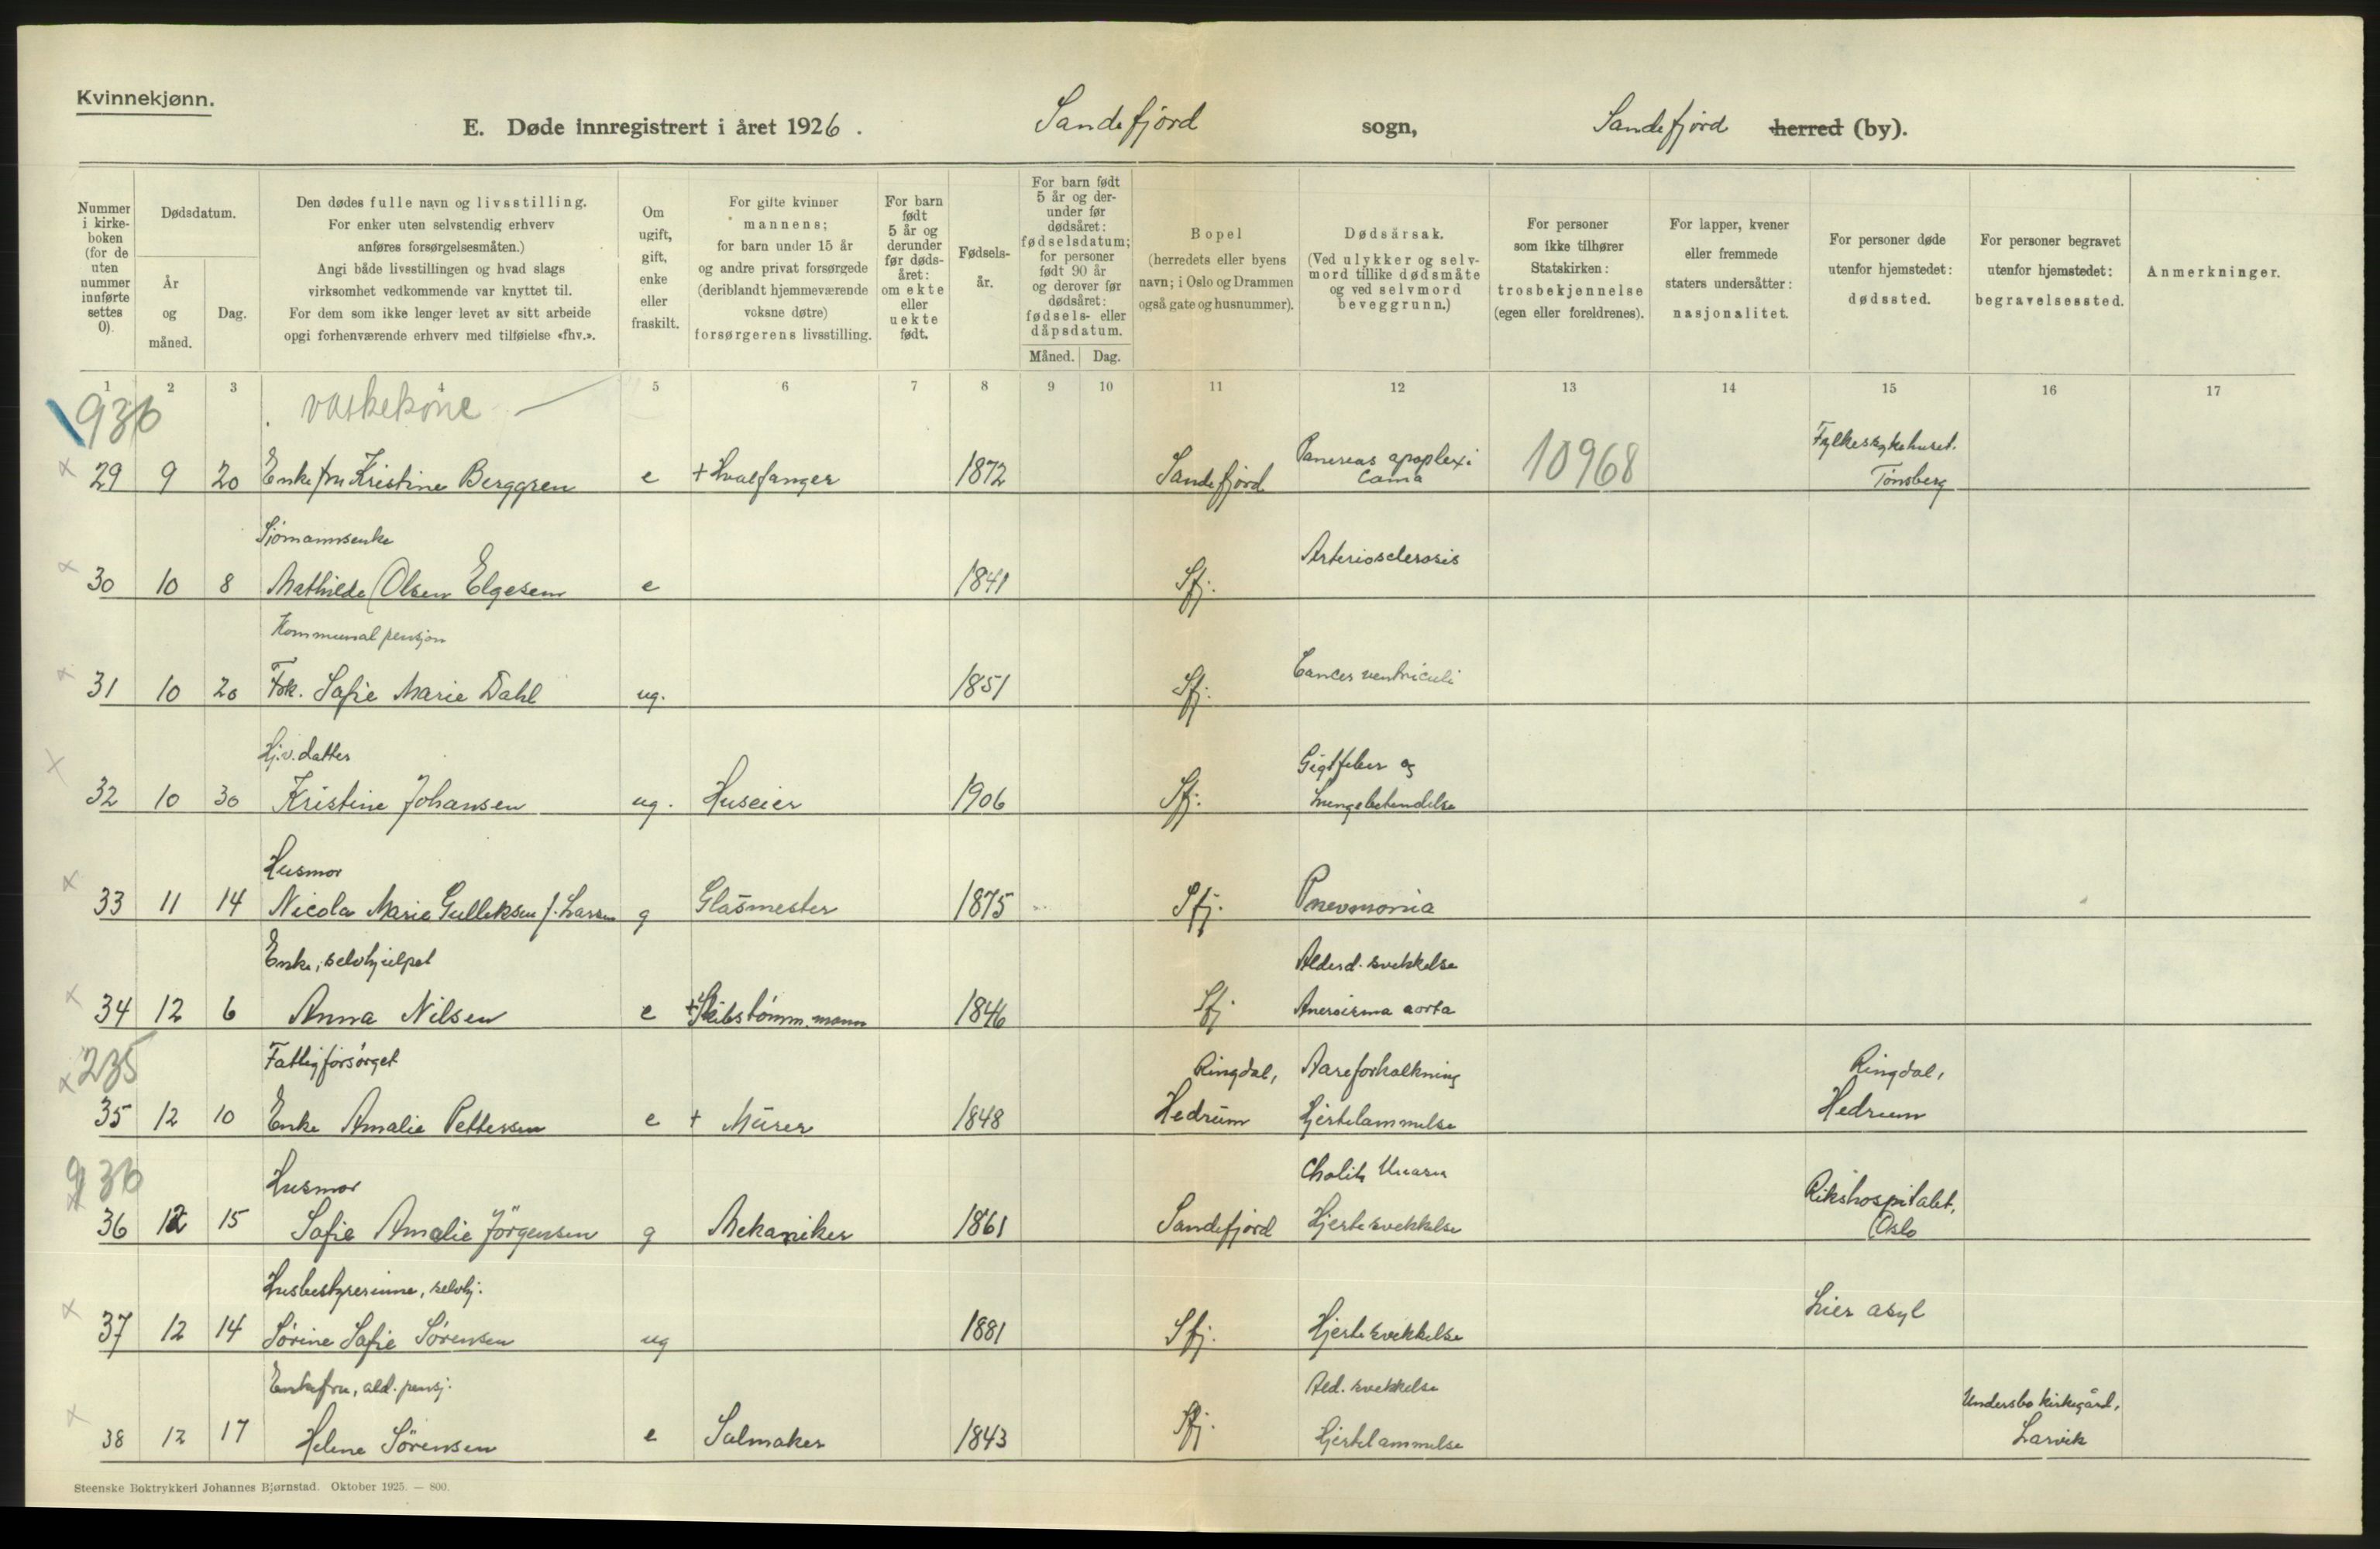 Kvinnekjønn.
E. Døde innregistrert i året 1926. Sandefjord sogn, Sandefjord herred (by).
Nummer i kirke-boken (for de uten nummer innførte settes 0).
Dødsdatum.
År og måned.
Dag.
Den dødes fulle navn og livsstilling.
For enker uten selvstendig erhverv
anføres forsørgelsesmåten.)
Angi både livsstillingen og hvad slags
virksomhet vedkommende var knyttet til.
For dem som ikke lenger levet av sitt arbeide
opgi forhenværende erhverv med tilføielse «fhv.».
Om ugift, gift, enke eller fraskilt.
For gifte kvinner
mannens;
for barn under 15 år
og andre privat forsørgede
(deriblandt hjemmeværende
voksne døtre)
forsørgerens livsstilling.
For barn født 5 år og derunder før døds-året: om ekte eller uekte født.
Fødsels-år.
For barn født 5 år og der-under før dødsåret: fødselsdatum; for personer født 90 år og derover før dødsåret: fødsels- eller dåpsdatum.
Måned. Dag.
Bopel
(herredets eller byens
navn; i Oslo og Drammen
også gate og husnummer).
Dødsårsak.
(Ved ulykker og selv-
mord tillike dødsmåte
og ved selvmord
beveggrunn.)
For personer
som ikke tilhører
Statskirken:
trosbekjennelse
(egen eller foreldrenes).
For lapper, kvener
eller fremmede
staters undersåtter:
nasjonalitet.
For personer døde
utenfor hjemstedet:
dødssted.
For personer begravet
utenfor hjemstedet:
begravelsessted.
Anmerkninger.
1 2 3 4 5 6 7 8 9 10 11 12 13 14 15 16 17
936 vaskekone
Fylkessykehuset.
Pancreas apoplexi
29 9 20 Enkefru Kristine Berggren e + Hvalfanger 1872 Sandefjord Coma 10968 Tønsberg
Sjømannsenke
Arteriosclerosis
30 10 8 Mathilde Olsen Elgesem e 1841 Sfj.
Kommunal pensjon
Cancer ventriculi
31 10 20 Frk. Sofie Marie Dahl ug. 1851 Sfj.
Hj.v. datter Gigtfeber og
32 10 30 Kristine Johansen ug. Huseier 1906 Sfj. Lungebetendelse
Husmor
33 11 14 Nicola Marie Gulliksen f. Larsen g Glasmester 1875 Sfj. Pnevmonia
Enke, selvhjulpet Alderd. svekkelse
34 12 6 Anna Nilsen e + Skibstømm.mann 1846 Sfj Anerisma aorta
235 Fattigforsørget Ringdal, Aareforkalkning Ringdal,
35 12 10 Enke Amalie Pettersen e + Murer 1848 Hedrum Hjertelammelse Hedrum
936 Husmor Rikshospitalet,
36 12 15 Sofie Amalie Jörgensen g Mekaniker 1861 Sandefjord Hjertesvekkelse Oslo
Husbestyrerinne, selvhj. Lier asyl
37 12 14 Sörine Sofie Sörensen ug 1881 Sfj. Hjertesvekkelse
Enkefru, ald. pensj. Ald. svekkelse Undersbo kirkegård,
38 12 17 Helene Sörensen e Salmaker 1843 Sfj. Hjertelammelse Larvik
Steenske Boktrykkeri Johannes Bjørnstad. Oktober 1925. — 800.